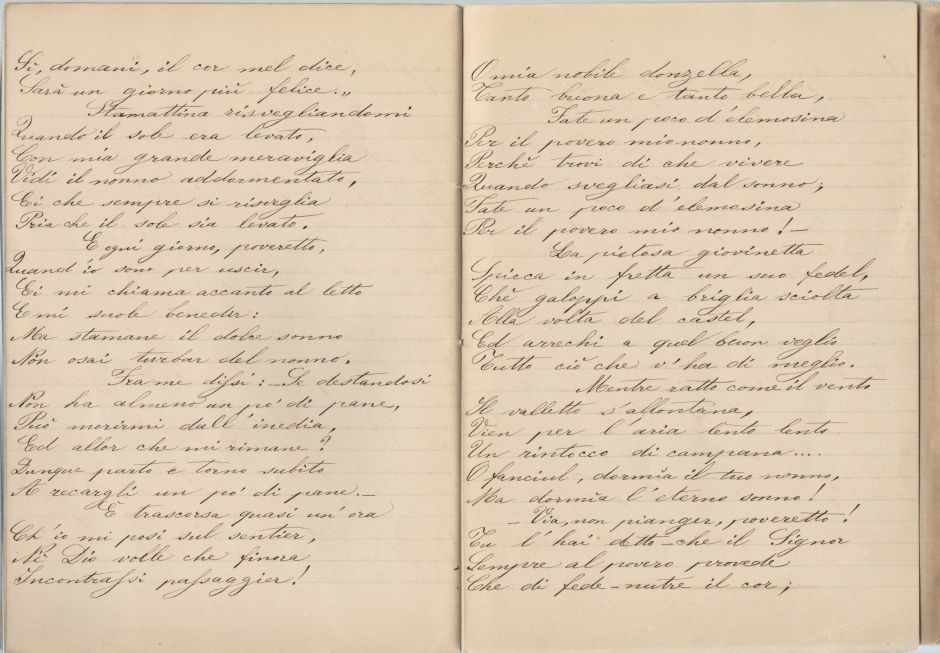 Sì, domani, il cor mel dice,
Sarà un giorno più felice.„
Stamattina risvegliandomi
Quando il sole era levato,
Con mia grande meraviglia
Vidi il nonno addormentato,
Ei che sempre si risveglia
Pria che il sole sia levato.
E ogni giorno, poveretto,
Quand'io sono per uscir,
Ei mi chiama accanto al letto
E mi suole benedir:
Ma stamane il dolce sonno
Non osai turbar del nonno.
Fra me dissi: — Se destandosi
Non ha almeno un po' di pane,
Può morirmi dall'inedia,
Ed allor che mi rimane?
Dunque parto e torno subito
A recargli un po' di pane. —
È trascorsa quasi un'ora
Ch'io mi posi sul sentier,
Nè Dio volle che finora
Incontrassi passaggier!
O mia nobile donzella,
Tanto buona e tanto bella,
Fate un poco d'elemosina
Per il povero mio nonno,
Perchè trovi di che vivere
Quando svegliasi dal sonno;
Fate un poco d'elemosina
Per il povero mio nonno! —
La pietosa giovinetta
Spicca in fretta un suo fedel,
Chè galoppi a briglia sciolta
Alla volta del castel,
Ed arrechi a quel buon veglio
Tutto ciò che v'ha di meglio.
Mentre ratto come il vento
Il valletto s'allontana,
Vien per l'aria lento lento
Un rintocco di campana....
O fanciul, dormìa il tuo nonno,
Ma dormìa l'eterno sonno!
— Via, non pianger, poveretto!
Tu l'hai detto — che il Signor
Sempre al povero provede
Che di fede — nutre il cor;